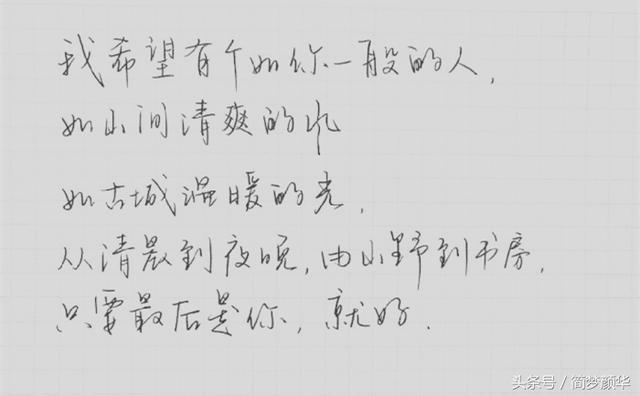 我希望有个如你一般的人,
如山间清爽的风
如古城温暖的光,
从清晨到夜晚,由山野到书房,
只要最后是你,就好.
头条号/简梦颜华